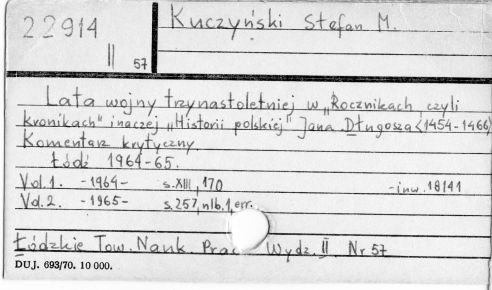 22914
II 57
Kuczyński Stefan M.
Lata wojny trzynastoletniej w „Rocznikach czyli
kronikach" inaczej „Historii polskiej" Jana Długosza (1454-1466)
Komentarz krytyczny.
Łódź 1964-65.
Vol. 1. -1964- s. XIII, 170 -inw. 18141
Vol. 2. -1965- s. 257, nlb. 1, err.
Łódzkie Tow. Nauk. Prac Wydz. II Nr 57
DUJ. 693/70. 10 000.